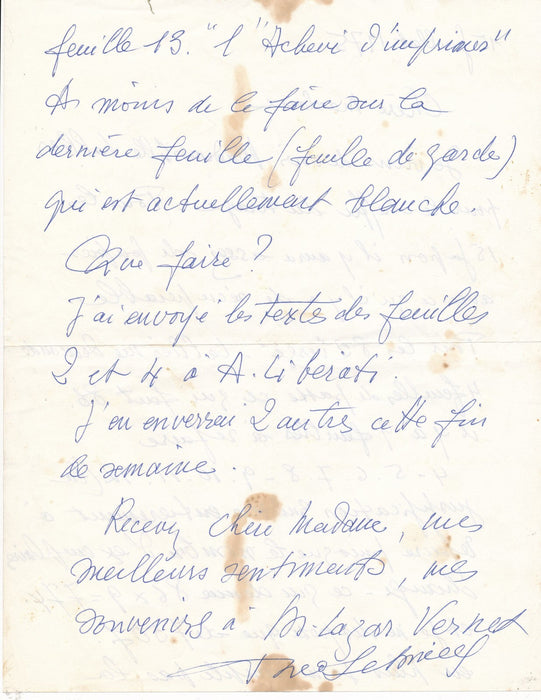 feuille 13. "l'"Achevé d'imprimer"
À moins de le faire sur la
dernière feuille (feuille de garde)
qui est actuellement blanche.
Que faire ?
J'ai envoyé les textes des feuilles
2 et 4 à A. Liberati.
J'en enverrai 2 autres cette fin
de semaine.
Recevez chère Madame, mes
meilleurs sentiments, mes
souvenirs à Lazar Vernet